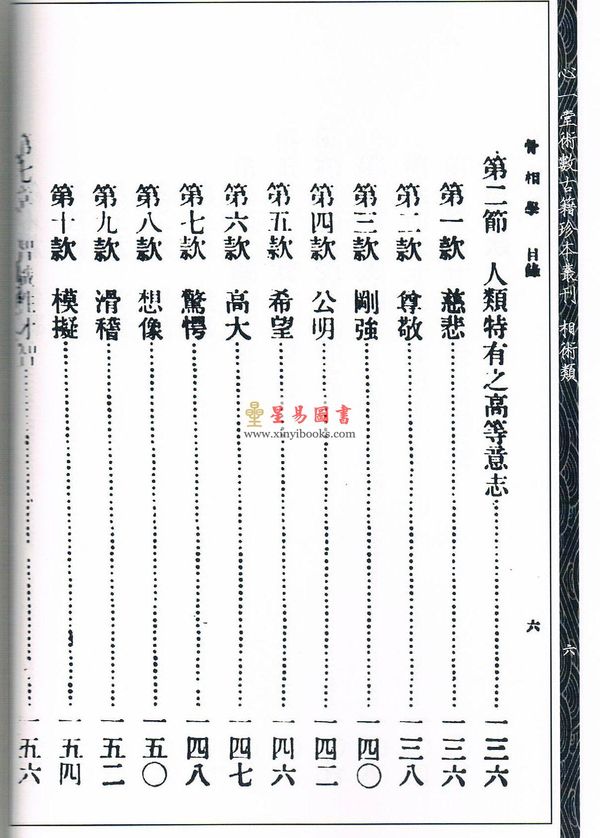 心一堂術數古籍珍本叢刊 相術類
六
骨相學 目錄
六
第二節 人類特有之高等意志 一三六
第一款 慈悲 一三六
第二款 尊敬 一三八
第三款 剛強 一四〇
第四款 公明 一四二
第五款 希望 一四六
第六款 高大 一四七
第七款 驚愕 一四八
第八款 想像 一五〇
第九款 滑稽 一五二
第十款 模擬 一五四
第七章 智 才智 一五六
星易圖書
www.xinyibooks.com